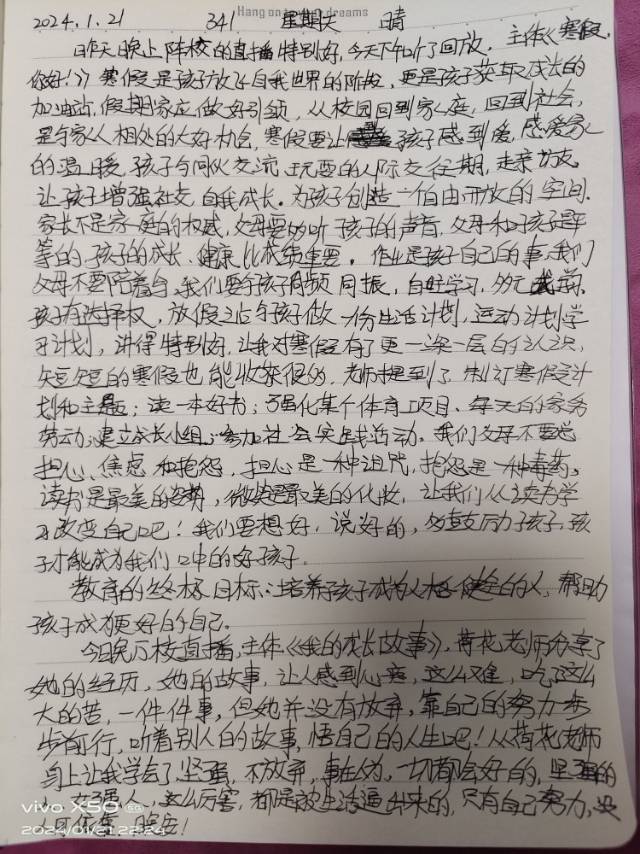 Hang on to your dreams
2024.1.21 341 星期天 晴
昨天晚上阵校的直播特别好,今天下午听了回放。主体《寒假,
你好!》寒假是孩子放了自我世界的阶段,更是孩子获取成长的
加油站,假期家庭做好引领,从校园回到家庭,回到社会,
是与家人相处的大好机会,寒假要让孩子感到爱,感爱家
的温暖,孩子与同伙交流玩耍的人际交往期,走亲访友
让孩子增强社交,自我成长。为孩子创造一个自由开放的空间.
家长不是家庭的权威,父母要的听孩子的声音,父母和孩子是平
等的,孩子的成长、健康比成绩重要。作业是孩子自己的事,我们
父母不要陪着写,我们要与孩子同频同振,自好学习,多元
孩子有选择权,放假之后与孩子做一份生活计划,运动计划学
习计划,讲得特别好,让我对寒假有了更一深一层的认识,
短短的寒假也能收来很多,老师提到了制订寒假计
划和主题;读一本好书;强化某个体育项目、每天的家务
劳动;建立成长小组;参加社会实践活动。我们父母不要老
担心、焦虑和抱怨,担心是一种诅咒,抱怨是一种毒药。
读书是最美的姿势,微笑是最美的化妆,让我们从读书学
习改变自己吧!我们要想好,说好的,多鼓励孩子,孩
子才能成为我们口中的好孩子。
教育的终极目标:培养孩子成为人格健全的人,帮助
孩子成为更好的自己。
今日晚万校直播,主体《我的成长故事》,荷花老师分享了
她的经历,她的故事,让人感到心疼,这么难,吃了这么
大的苦,一件件事,但她并没有放弃,靠自己的努力一步
步前行,听着别人的故事,悟自己的人生吧!从荷花老师
身上让我学会了坚强,不放弃,事在人为,一切都会好的,坚强的
女强人,这么厉害,都是被生活逼出来的,只有自己努力,
晚安!
vivo X50 5G
2024/01/21 22:24